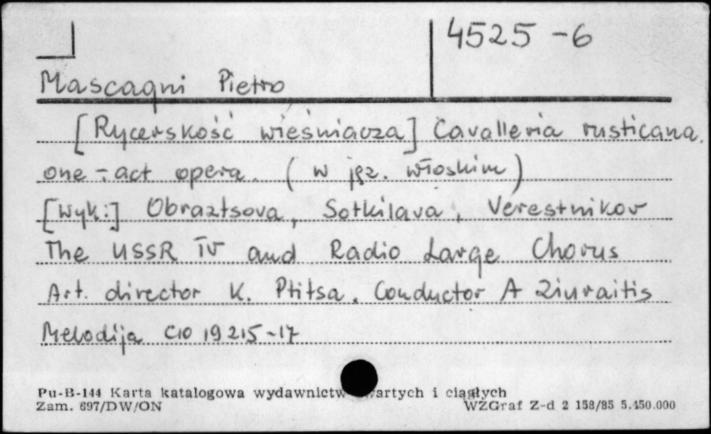 4525-6
Mascagni Pietro
[Rycerskość wieśniacza] Cavalleria rusticana.
one-act opera. (w jęz. włoskim)
[Wyk:] Obraztsova, Sotkilava, Verestnikov
The USSR TV and Radio Large Chorus
Art. director K. Ptitsa. Conductor A Ziuraitis
Melodija C10 19215-17
Pu-B-144 Karta katalogowa wydawnictw zwartych i ciągłych
Zam. 697/DW/ON WZGraf Z-d 2 158/85 5.450.000